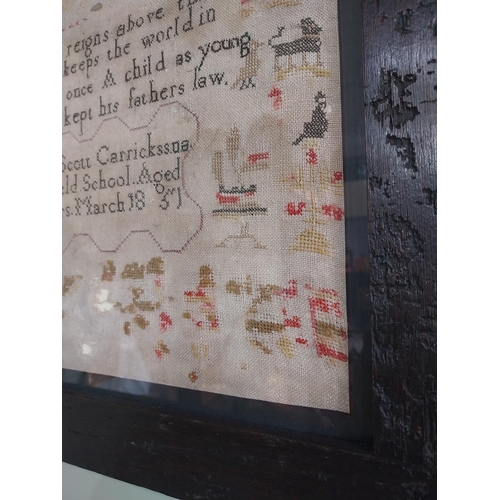 reigns above th
keeps the world in
once A child as young
kept his fathers law.
Scott Carrickssna
ild School. Aged
s. March 18 3 1